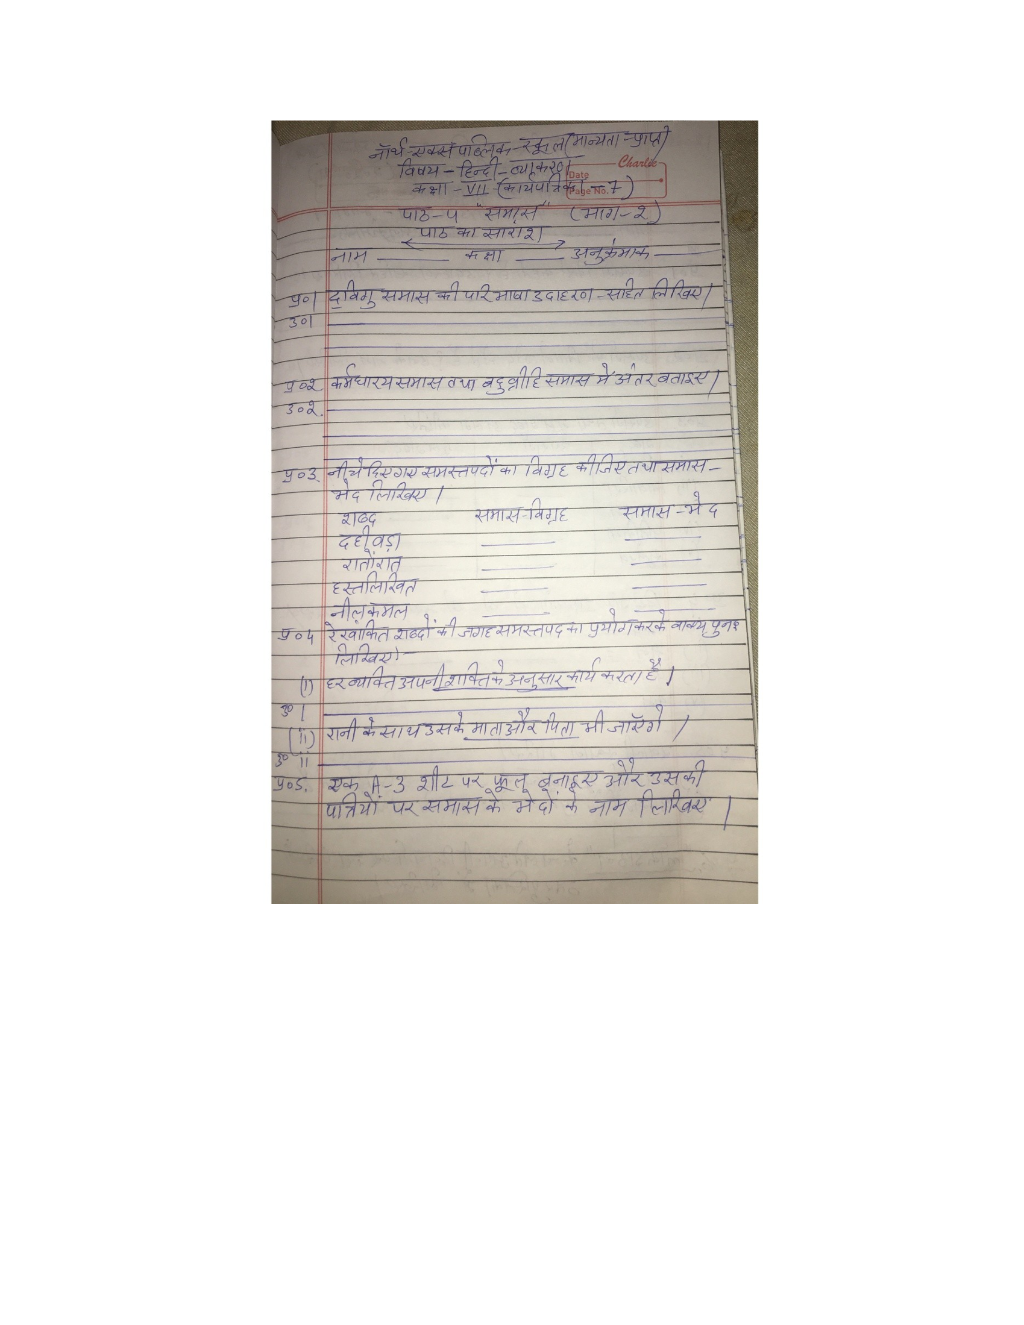 नॉर्थ-एक्स पब्लिक-स्कूल (मान्यता-प्राप्त)
विषय - हिन्दी - व्याकरण
Charlie
Date
कक्षा - VII (कार्यपत्रिका - 7)
Page No.
पाठ-५ "समास" (भाग-२)
पाठ का सारांश
नाम ______ कक्षा ______ अनुक्रमांक ______
प्र०१ द्विगु समास की परिभाषा उदाहरण-सहित लिखिए।
उ०१
प्र०२ कर्मधारय समास तथा बहुव्रीहि समास में अंतर बताइए।
उ०२.
प्र०३. नीचे दिए गए समस्तपदों का विग्रह कीजिए तथा समास-
भेद लिखिए।
शब्द समास-विग्रह समास-भेद
दहीवड़ा ______ ______
रातोंरात ______ ______
हस्तलिखित ______ ______
नीलकमल ______ ______
प्र०४ रेखांकित शब्दों की जगह समस्तपद का प्रयोग करके वाक्य पुनः
लिखिए।-
(i) हर व्यक्ति अपनी शक्ति के अनुसार कार्य करता है।
उ० i
(ii) रानी के साथ उसके माता और पिता भी जाएँगे।
उ० ii
प्र०5. एक A-3 शीट पर फूल बनाइए और उसकी
पत्तियों पर समास के भेदों के नाम लिखिए।